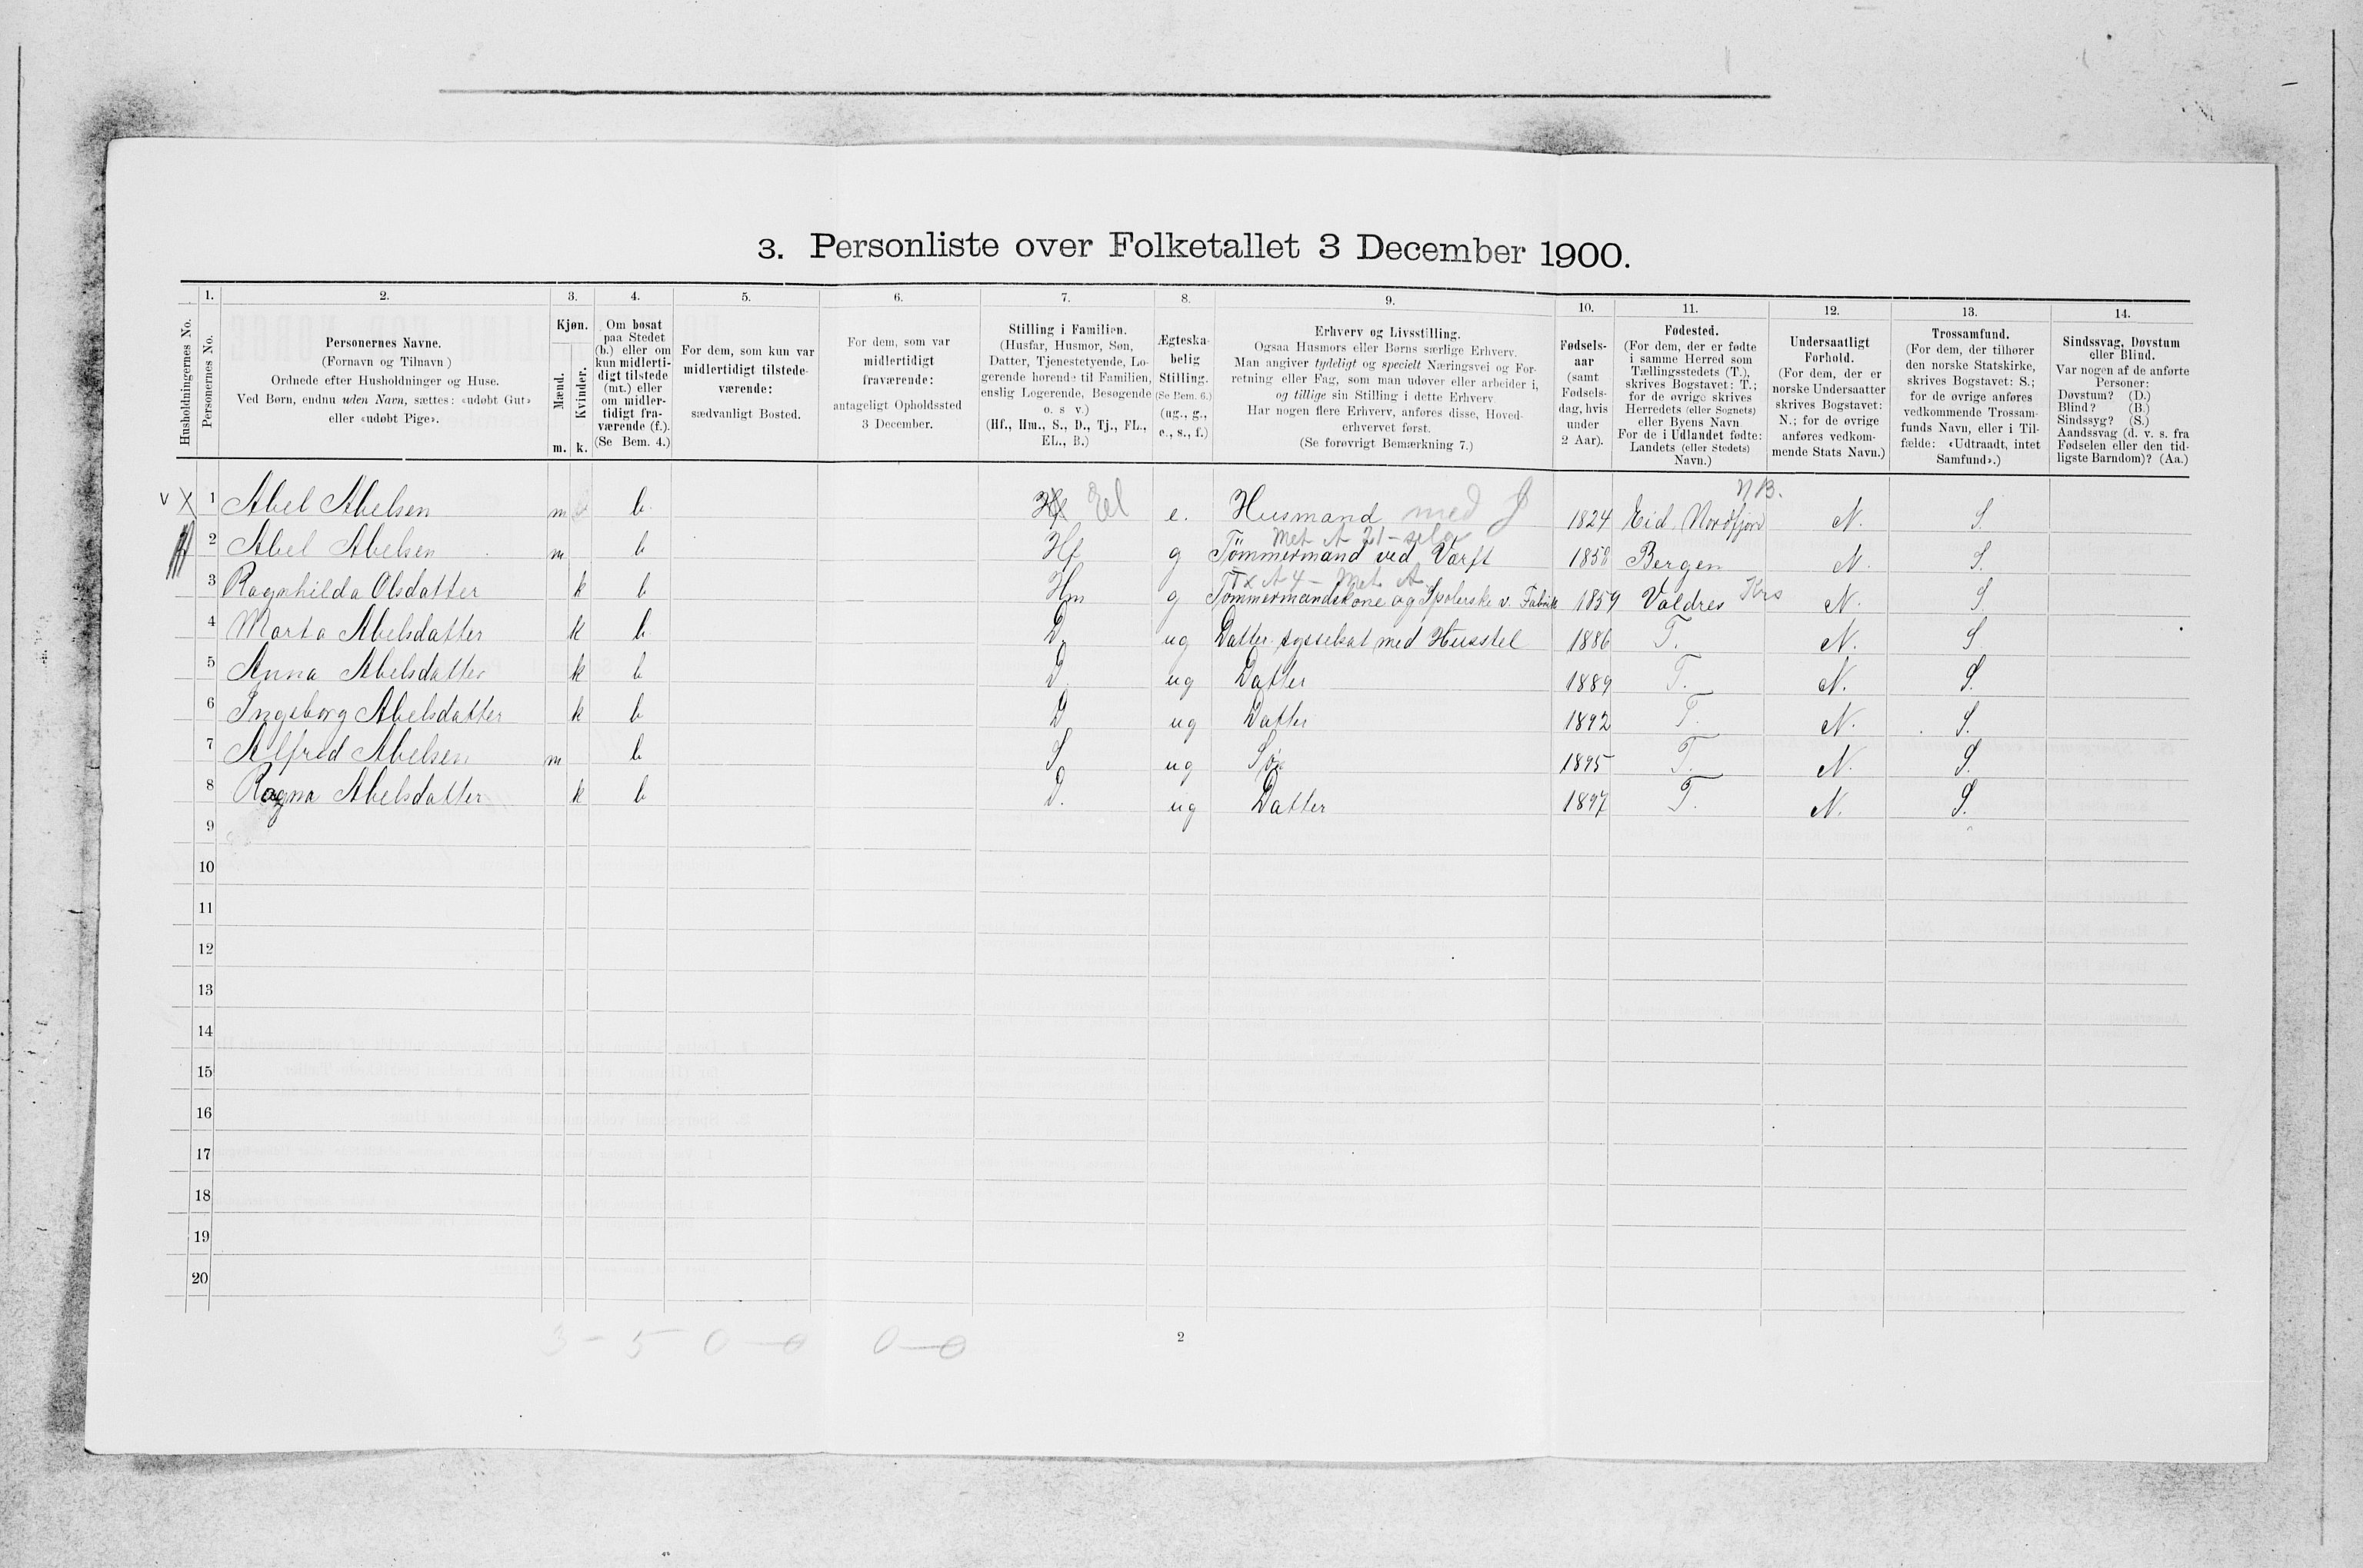 3. Personliste over Folketallet 3 December 1900.
1. 2. 3. 4. 5. 6. 7. 8. 9. 10. 11. 12. 13. 14.
Husholdningernes No.
Personernes No.
Personernes Navne.
(Fornavn og Tilnavn)
Ordnede efter Husholdninger og Huse.
Ved Børn, endnu uden Navn, sættes: «udøbt Gut»
eller «udøbt Pige».
Kjøn.
Mænd.
Kvinder.
m. k.
Om bosat
paa Stedet
(b.) eller om
kun midlerti-
digt tilstede
(mt.) eller
om midler-
tidigt fra-
værende (f.).
(Se Bem. 4.)
For dem, som kun var
midlertidigt tilstede-
værende:
sædvanligt Bosted.
For dem, som var
midlertidigt
fraværende:
antageligt Opholdssted
3 December.
Stilling i Familien.
(Husfar, Husmor, Søn,
Datter, Tjenestetyende, Lo-
gerende hørende til Familien,
enslig Logerende, Besøgende
o. s v.)
(Hf., Hm., S., D., Tj., FL.,
EL., B.)
Ægteska-
belig
Stilling.
(Se Bem. 6.)
(ug., g.,
e., s., f.)
Erhverv og Livsstilling.
Ogsaa Husmors eller Børns særlige Erhverv.
Man angiver tydeligt og specielt Næringsvei og For-
retning eller Fag, som man udøver eller arbeider i,
og tillige sin Stilling i dette Erhverv
Har nogen flere Erhverv, anføres disse, Hoved-
erhvervet først.
(Se forøvrigt Bemærkning 7.)
Fødsels-
aar
(samt
Fødsels-
dag, hvis
under
2 Aar).
Fødested.
(For dem, der er fødte
i samme Herred som
Tællingsstedets (T.),
skrives Bogstavet: T.;
for de øvrige skrives
Herredets (eller Sognets)
eller Byens Navn
For de i Udlandet fødte:
Landets (eller Stedets)
Navn.)
Undersaatligt
Forhold.
(For dem, der er
norske Undersaatter
skrives Bogstavet:
N.; for de øvrige
anføres vedkom-
mende Stats Navn.)
Trossamfund.
(For dem, der tilhører
den norske Statskirke,
skrives Bogstavet: S.;
for de øvrige anføres
vedkommende Trossam-
funds Navn, eller i Til-
fælde: «Udtraadt, intet
Samfund».)
Sindssvag, Døvstum
eller Blind.
Var nogen af de anførte
Personer:
Døvstum? (D.)
Blind? (B.)
Sindssyg? (S.)
Aandssvag (d. v. s. fra
Fødselen eller den tid-
ligste Barndom)? (Aa.)
NB.
v X 1 Abel Abelsen m b Hf El e. Husmand med J 1824 Eid Nordfjord N. S.
Met A 21 - selv
2 Abel Abelsen m b Hf g Tömmermand ved Værft 1858 Bergen N. S.
Tx A 4 - Met A
3 Ragnhilda Olsdatter k b Hm g Tömmermandskone og Spolerske v. Fabrik 1859 Valdres Krs N. S
4 Marta Abelsdatter k b D. ug Datter sysselsat med Husstel 1886 T. N. S
5 Anna Abelsdatter k b D ug Datter 1889 T. N. S.
6 Ingeborg Abelsdatter k b D ug Datter 1892 T. N. S.
7 Alfred Abelsen m b S ug Søn 1895 T. N. S.
8 Ragna Abelsdatter k b D. ug Datter 1897 T. N. S.
9
10
11
12
13
14
15
16
17
18
19
20
3 - 5 0 - 0 0 - 0
2